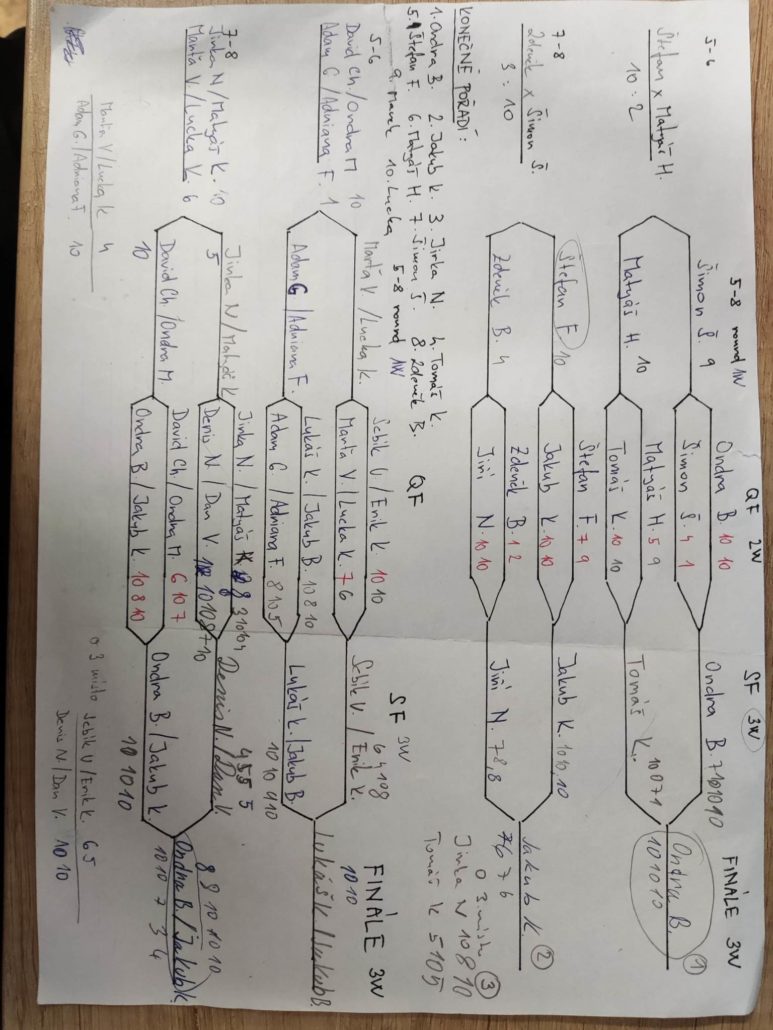 QF 2W
SF 3W
FINÁLE 3W
5-8 round 1W
5-6
Štefan x Matyáš H.
10 : 2
7-8
Zdeněk x Šimon Š.
3 : 10
Šimon Š. 9
Matyáš H. 10
Štefan F. 10
Zdeněk B. 4
Ondra B. 10 10
Šimon Š. 4 1
Matyáš H. 5 9
Tomáš K. 10 10
Štefan F. 7 9
Jakub K. 10 10
Zdeněk B. 1 2
Jiří N. 10 10
Ondra B. 7 10 10 10
Tomáš K. 10 0 7 1
Jakub K. 10 10, 10
Jiří N. 7 8, 8
Ondra B. 1
10 10 10
Jakub K. 2
7 6 7 6
O 3. místo 3
Jirka N 10 8 10
Tomáš K 5 10 5
KONEČNÉ POŘADÍ:
1. Ondra B. 2. Jakub K. 3. Jirka N. 4. Tomáš K.
5. Štefan F. 6. Matyáš H. 7. Šimon Š. 8. Zdeněk B.
9. Marek 10. Lucka
5-8 round 1W
QF
SF 3W
FINÁLE 3W
5-6
David Ch / Ondra M 10
Adam G / Adriana F. 1
7-8
Jirka N / Matyáš K. 10
Marta V / Lucka K. 6
Marta V / Lucka K.
Adam G / Adriana F.
Jirka N / Matyáš K
5
David Ch / Ondra M.
10
Sebik V / Erik K 10 10
Marta V. / Lucka K. 7 6
Lukáš K. / Jakub B. 10 8 10
Adam G. / Adriana F. 8 10 5
Jirka N. / Matyáš K
Denis N. / Dan V.
David Ch / Ondra M. 6 10 7
Ondra B / Jakub K. 10 8 10
Sebik V. / Erik K.
6 4 10 8
Lukáš K. / Jakub B.
10 10 9 10
Denis N. / Dan V
4 5 5 5
Ondra B. / Jakub K.
10 10 10
Lukáš K / Jakub B.
10 10
8 9 10 10 10
Ondra B / Jakub K.
10 10 7 3 4
Marta V / Lucka K 4
Adam G. / Adriana F. 10
O 3 místo Sebik V / Erik K. 6 5
Denis N. / Dan V. 10 10